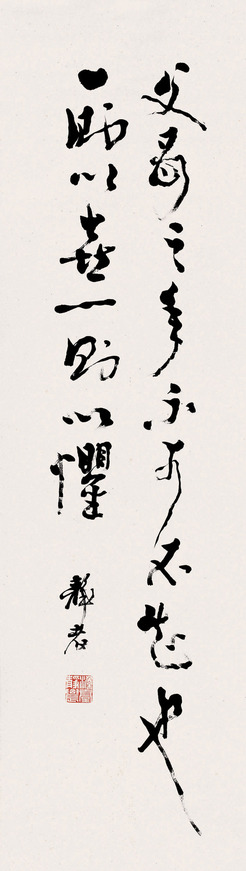 父母之年不可不知也
一則以喜一則以懼
靜者